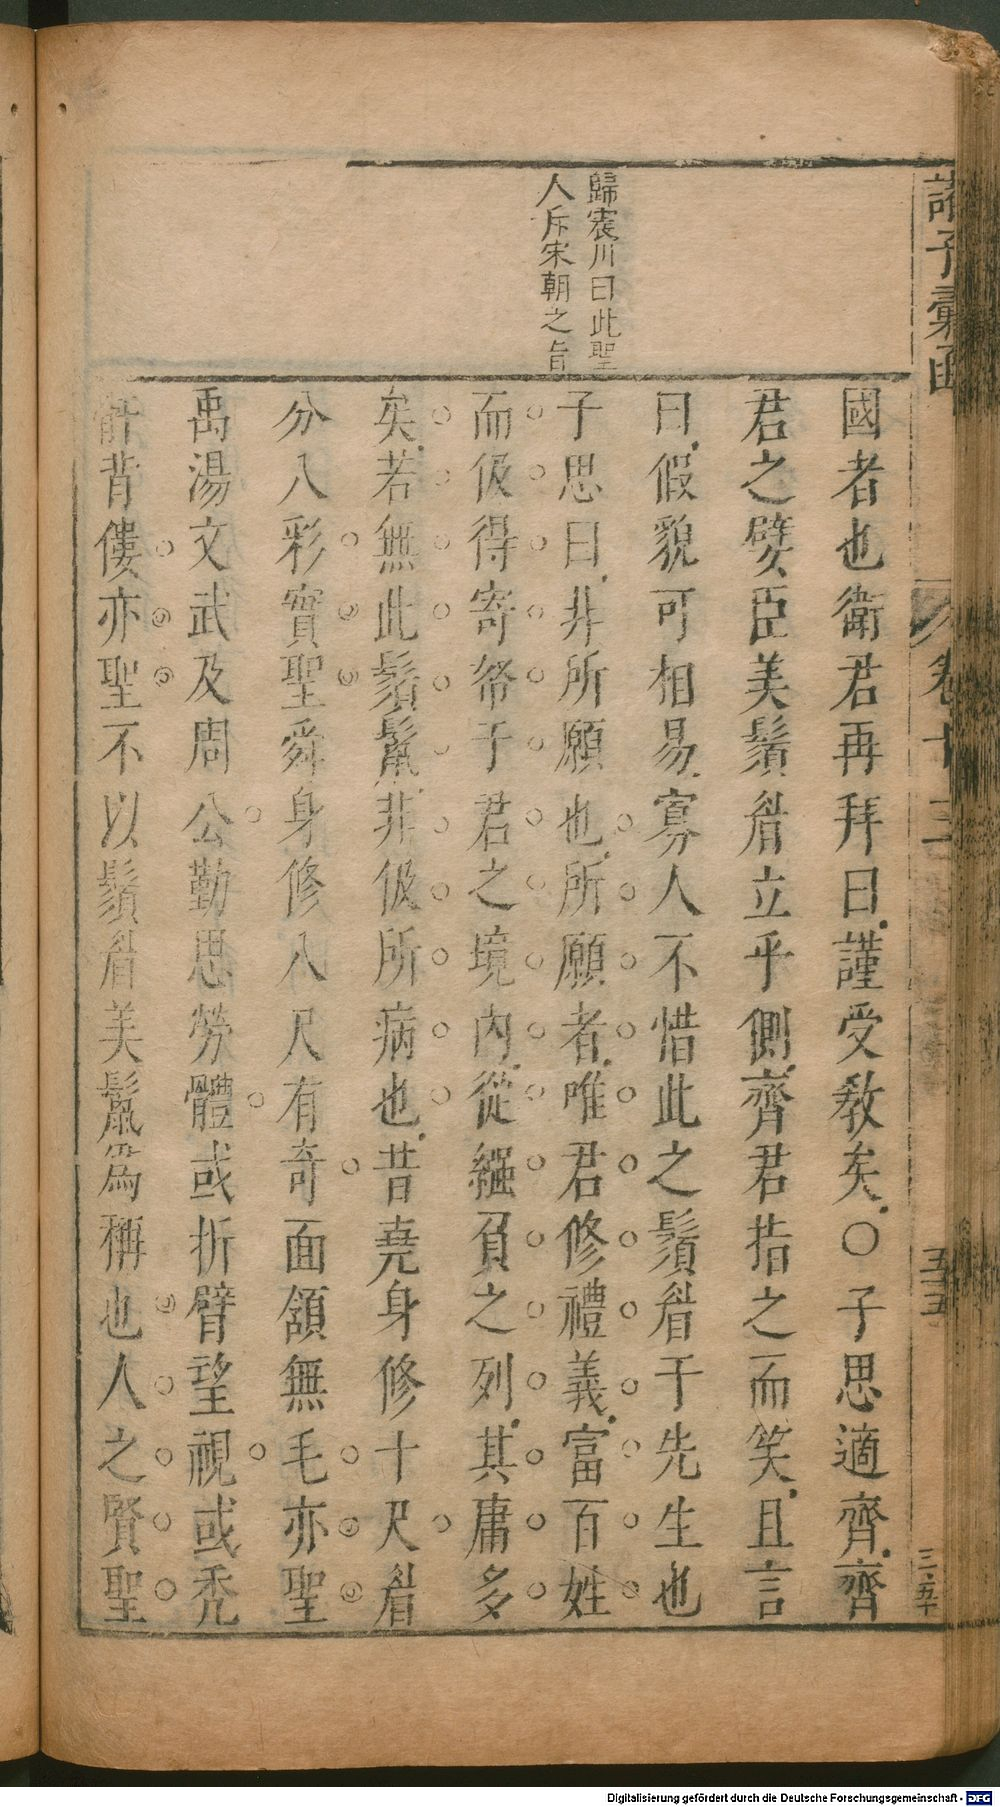 諸子彙函
卷十三
五十五
三・五十
歸震川曰此聖
人斥宋朝之旨
國者也衛君再拜曰謹受敎矣〇子思適齊齊
君之嬖臣美鬚眉立乎側齊君指之而笑且言
曰假貌可相易寡人不惜此之鬚眉于先生也
子思曰非所願也所願者唯君修禮義富百姓
而伋得寄帑子君之境內從繈負之列其庸多
矣若無此鬚鬣非伋所病也昔堯身修十尺眉
分八彩實聖舜身修八尺有奇面頷無毛亦聖
禹湯文武及周公勤思勞體或折臂望視或禿
骭背僂亦聖不以鬚眉美鬣爲稱也人之賢聖
Digitalisierung gefördert durch die Deutsche Forschungsgemeinschaft - DFG